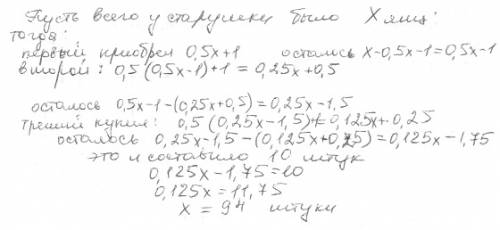 Пусть всего у старушки было X яиц:
тогда:
первый приобрел 0,5x+1 осталось x-0,5x-1=0,5x-1
второй: 0,5(0,5x-1)+1=0,25x+0,5
осталось 0,5x-1-(0,25x+0,5)=0,25x-1,5
третий купил: 0,5(0,25x-1,5)+=0,125x+0,25
осталось 0,25x-1,5-(0,125x+0,25)=0,125x-1,75
это и составило 10 штук
0,125x-1,75=10
0,125x=11,75
x = 94 штуки